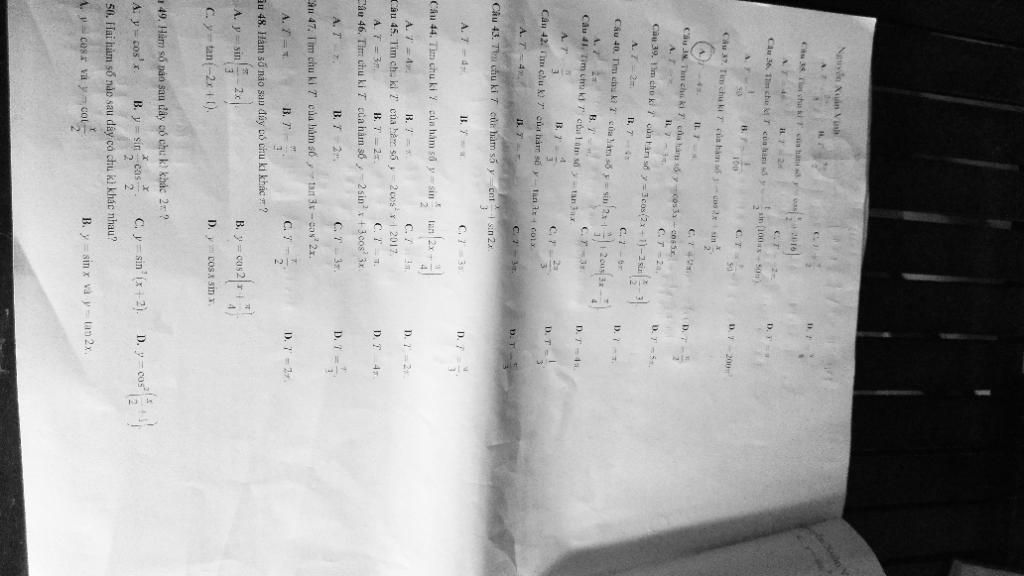 Nguyễn Xuân Vinh
Câu 35. Tìm chu kì T của hàm số y = cos(x/2 + 2016).
A. T = 4π. B. T = 2π. C. T = -2π. D. T = π.
Câu 36. Tìm chu kì T của hàm số y = -1/2 sin(100πx + 50π).
A. T = 1/50. B. T = 1/100. C. T = π/50. D. T = 200π².
Câu 37. Tìm chu kì T của hàm số y = cos2x + sin x/2.
A. T = 4π. B. T = π. C. T = 2π. D. T = π/2.
Câu 38. Tìm chu kì T của hàm số y = cos3x + cos5x.
A. T = π. B. T = 3π. C. T = 2π. D. T = 5π.
Câu 39. Tìm chu kì T của hàm số y = 3cos(2x + 1) - 2sin(x/2 - 3).
A. T = 2π. B. T = 4π. C. T = 6π. D. T = π.
Câu 40. Tìm chu kì T của hàm số y = sin(2x + π/3) + 2cos(3x - π/4).
A. T = 2π. B. T = π. C. T = 3π. D. T = 4π.
Câu 41. Tìm chu kì T của hàm số y = tan3πx.
A. T = π/3. B. T = 4/3. C. T = 2π/3. D. T = 1/3.
Câu 42. Tìm chu kì T của hàm số y = tan3x + cotx.
A. T = 4π. B. T = π. C. T = 3π. D. T = π/3.
Câu 43. Tìm chu kì T của hàm số y = cot x/3 + sin2x.
A. T = 4π. B. T = π. C. T = 3π. D. T = π/3.
Câu 44. Tìm chu kì T của hàm số y = sin x/2 - tan(2x + π/4).
A. T = 4π. B. T = π. C. T = 3π. D. T = 2π.
Câu 45. Tìm chu kì T của hàm số y = 2cos² x + 2017.
A. T = 3π. B. T = 2π. C. T = π. D. T = 4π.
Câu 46. Tìm chu kì T của hàm số y = 2sin² x + 3cos² 3x.
A. T = π. B. T = 2π. C. T = 3π. D. T = π/3.
47. Tìm chu kì T của hàm số y = tan3x - cos² 2x.
A. T = π. B. T = π/3. C. T = π/2. D. T = 2π.
48. Hàm số nào sau đây có chu kì khác π?
A. y = sin(π/3 - 2x). B. y = cos2(x + π/4).
C. y = tan(-2x + 1). D. y = cosx sinx.
49. Hàm số nào sau đây có chu kì khác 2π?
A. y = cos³ x. B. y = sin x/2 cos x/2. C. y = sin²(x + 2). D. y = cos²(x/2 + 1).
50. Hai hàm số nào sau đây có chu kì khác nhau?
A. y = cosx và y = cot x/2. B. y = sinx và y = tan2x.